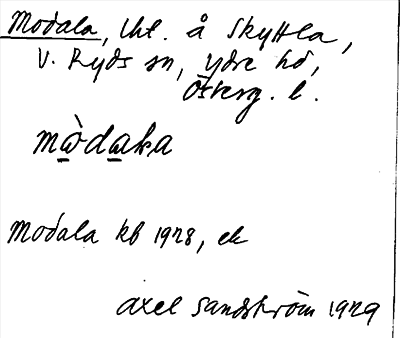 Modala, lht. å Skyttla,
V. Ryds sn, Ydre hd,
Österg. l.
mὼdaka
Modala kb 1928, ek
Axel Sandström 1929